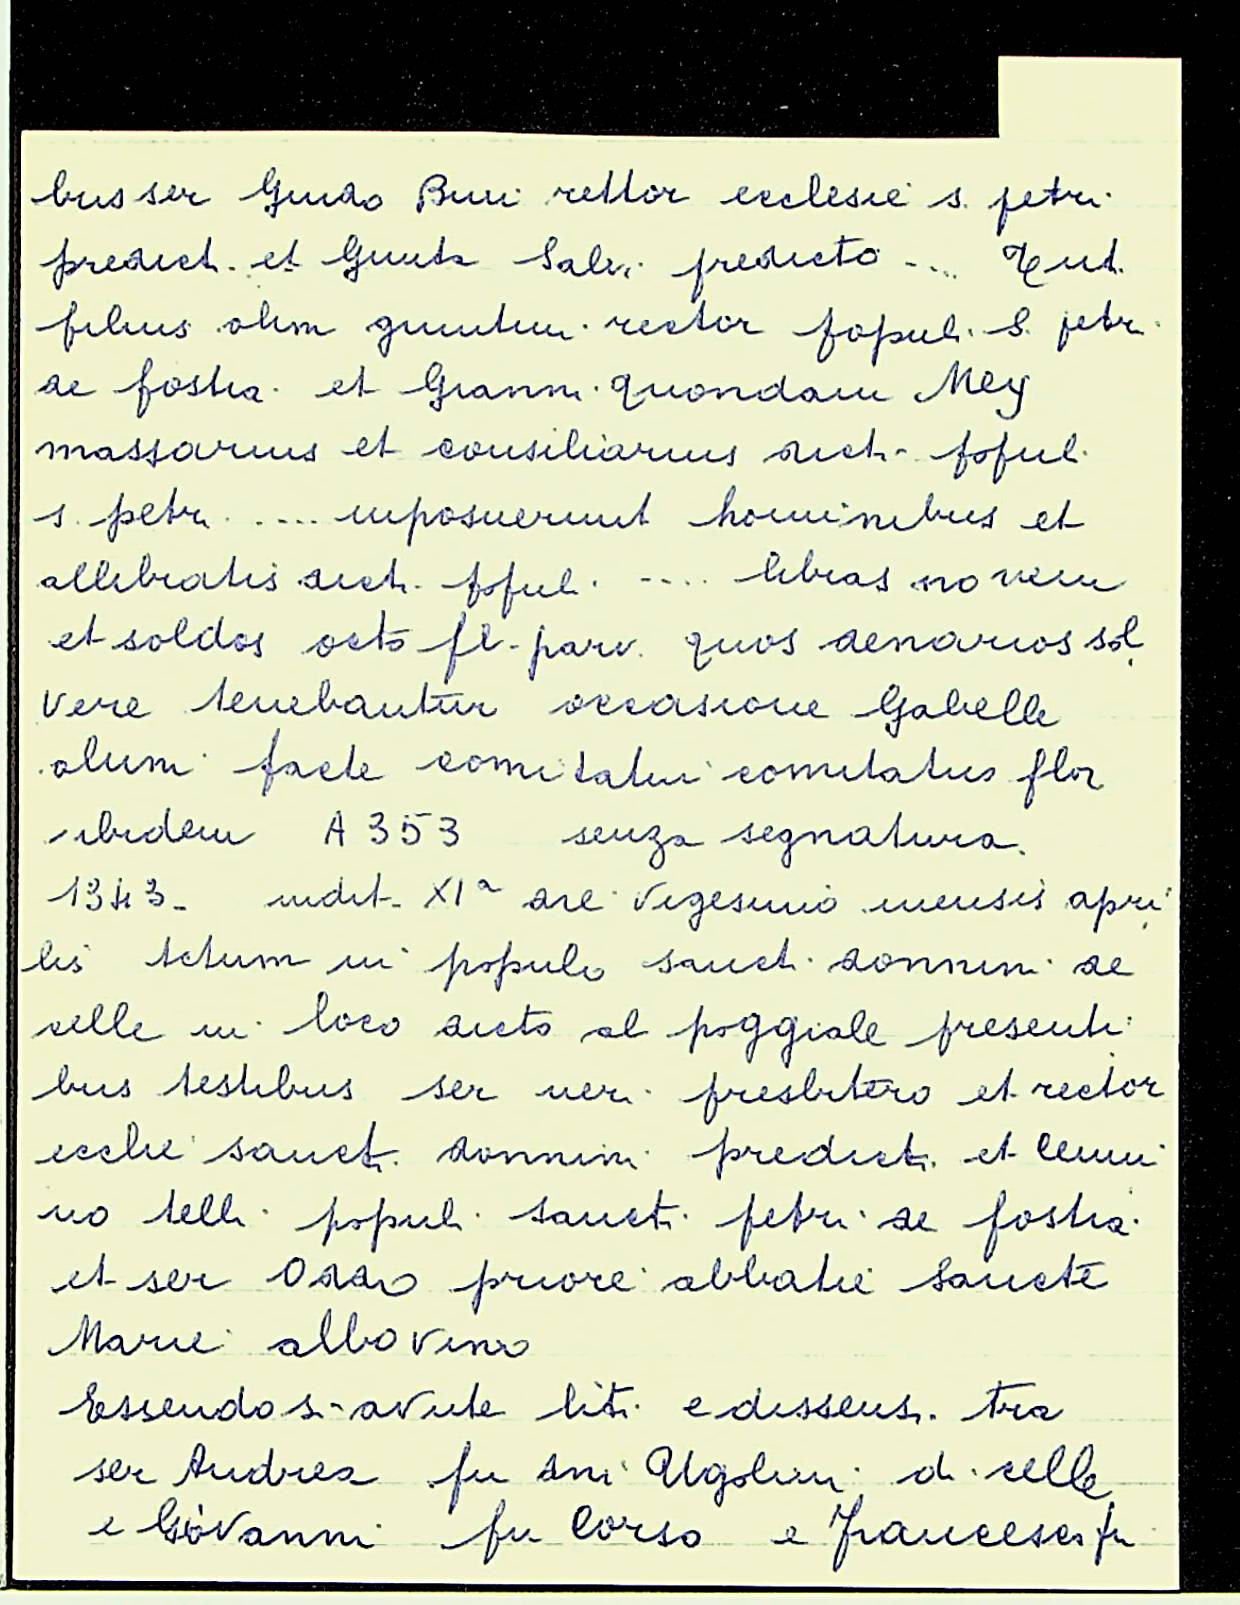 bus ser Guido Bini rettor ecclesie s. petri
predicti. et Giunta Salvi predicto ....
filius olim giuntini rector populi S. petri
de fostia. et Gianni quondam Mey
massarius et consiliarius dicti popul.
s. petri .... imposuerunt hominibus et
allibratis dicti popul. .... libras novem
et soldos octo fl. parv. quos denarios sol
vere tenebantur occasione Gabelle
olim facte comitatui comitatus flor
ibidem A 353 senza segnatura.
1343. indit. XIª die vigesimo mensis apri
lis actum in populo sancti donnini de
celle in loco dicto al poggiale presenti
bus testibus ser neri presbitero et rector
ecclie sancti donnini predicti. et Cenni
no telli populi sancti petri de fostia.
et ser Oddo priore abbatie Sancte
Marie albo vino
Essendosi avute liti e dissensi. tra
ser Andrea fu dni Ugolini di celle
e Giovanni fu Corso e Francesco fu